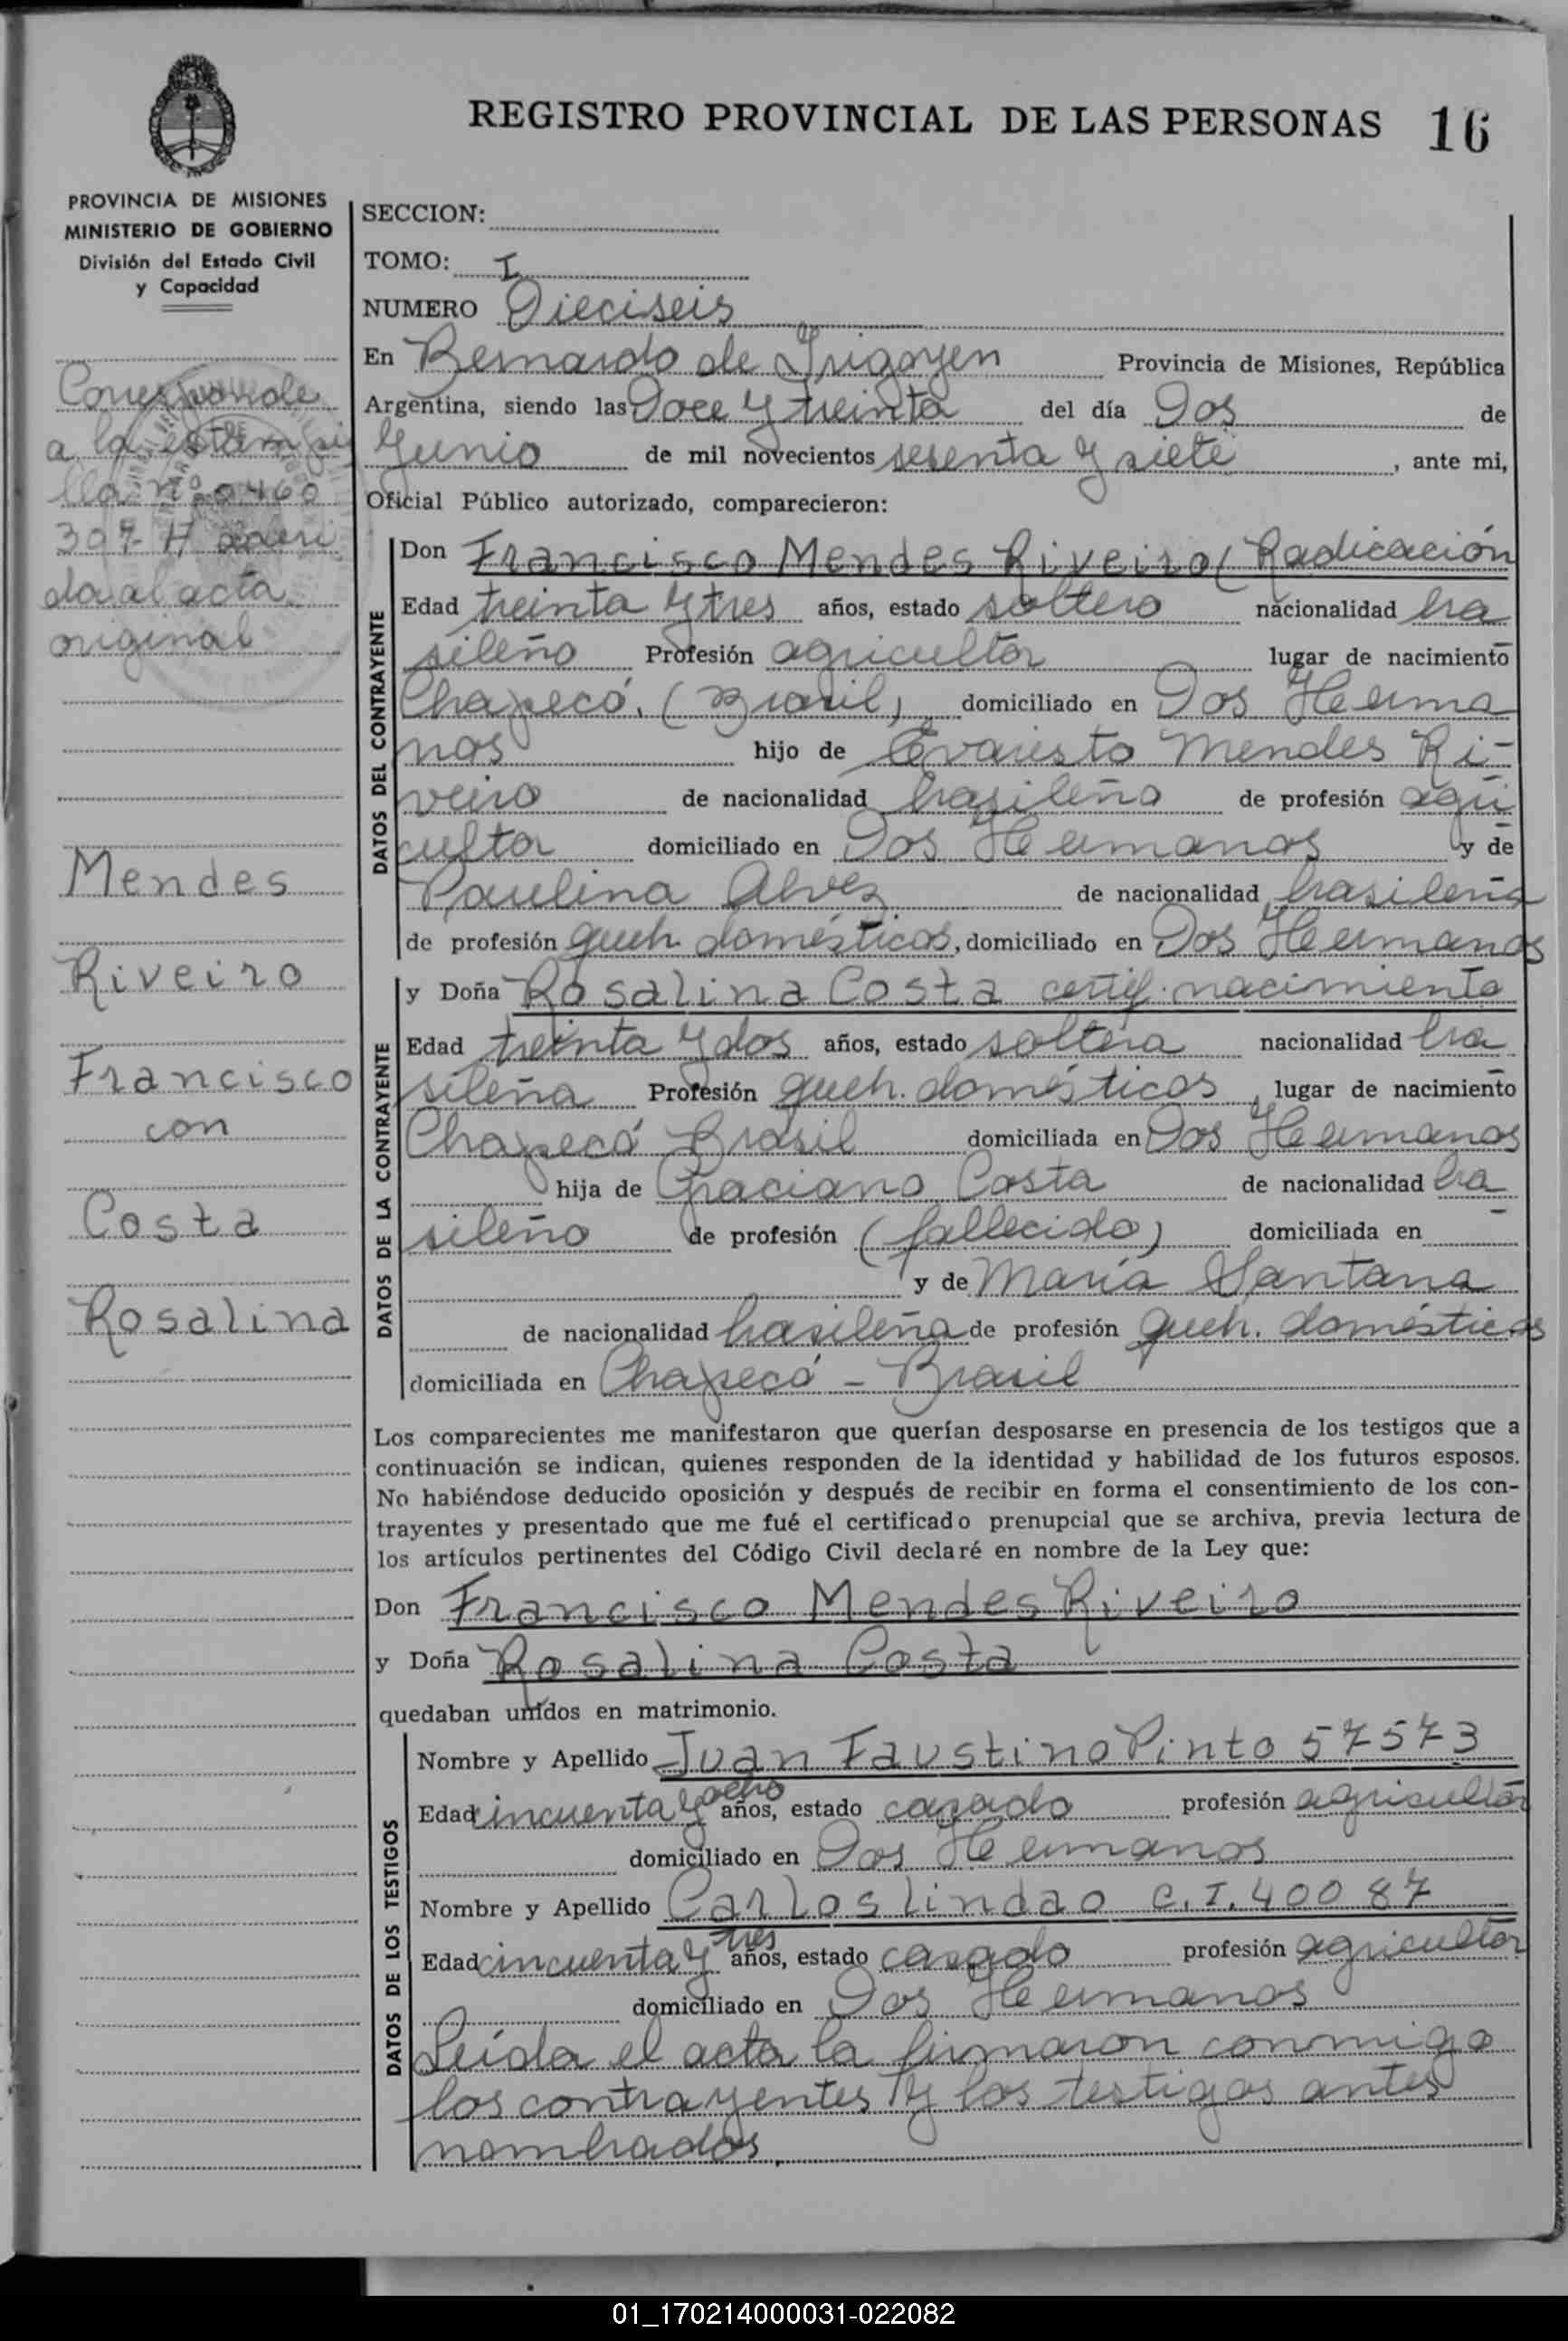 REGISTRO PROVINCIAL DE LAS PERSONAS 16
PROVINCIA DE MISIONES
MINISTERIO DE GOBIERNO
División del Estado Civil
y Capacidad
Corresponde
a la estampi
lla nº 0460
307-H adheri
da al acta
original
Mendes
Riveiro
Francisco
con
Costa
Rosalina
SECCION:
TOMO: I
NUMERO Dieciseis
En Bernardo de Irigoyen Provincia de Misiones, República
Argentina, siendo las Doce y treinta del día Dos de
Junio de mil novecientos sesenta y siete, ante mi,
Oficial Público autorizado, comparecieron:
DATOS DEL CONTRAYENTE
Don Francisco Mendes Riveiro (Radicación
Edad treinta y tres años, estado soltero nacionalidad bra
sileño Profesión agricultor lugar de nacimiento
Chapecó, (Brasil) domiciliado en Dos Herma
nos hijo de Evaristo Mendes Ri-
veiro de nacionalidad brasileño de profesión agri
cultor domiciliado en Dos Hermanos y de
Paulina Alvez de nacionalidad brasileña
de profesión queh. domésticos, domiciliado en Dos Hermanos
DATOS DE LA CONTRAYENTE
y Doña Rosalina Costa certif. nacimiento
Edad treinta y dos años, estado soltera nacionalidad bra
sileña Profesión queh. domésticos, lugar de nacimiento
Chapecó Brasil domiciliada en Dos Hermanos
hija de Graciano Costa de nacionalidad bra
sileño de profesión (fallecido) domiciliada en
y de María Santana
de nacionalidad brasileña de profesión queh. domésticos
domiciliada en Chapecó - Brasil
Los comparecientes me manifestaron que querían desposarse en presencia de los testigos que a
continuación se indican, quienes responden de la identidad y habilidad de los futuros esposos.
No habiéndose deducido oposición y después de recibir en forma el consentimiento de los con-
trayentes y presentado que me fué el certificado prenupcial que se archiva, previa lectura de
los artículos pertinentes del Código Civil declaré en nombre de la Ley que:
Don Francisco Mendes Riveiro
y Doña Rosalina Costa
quedaban unidos en matrimonio.
DATOS DE LOS TESTIGOS
Nombre y Apellido Juan Faustino Pinto 57573
Edad cincuenta y ocho años, estado casado profesión agricultor
domiciliado en Dos Hermanos
Nombre y Apellido Carlos Lindao C.I. 40087
Edad cincuenta y tres años, estado casado profesión agricultor
domiciliado en Dos Hermanos
Leída el acta la firmaron conmigo
los contrayentes y los testigos antes
nombrados.
01_170214000031-022082